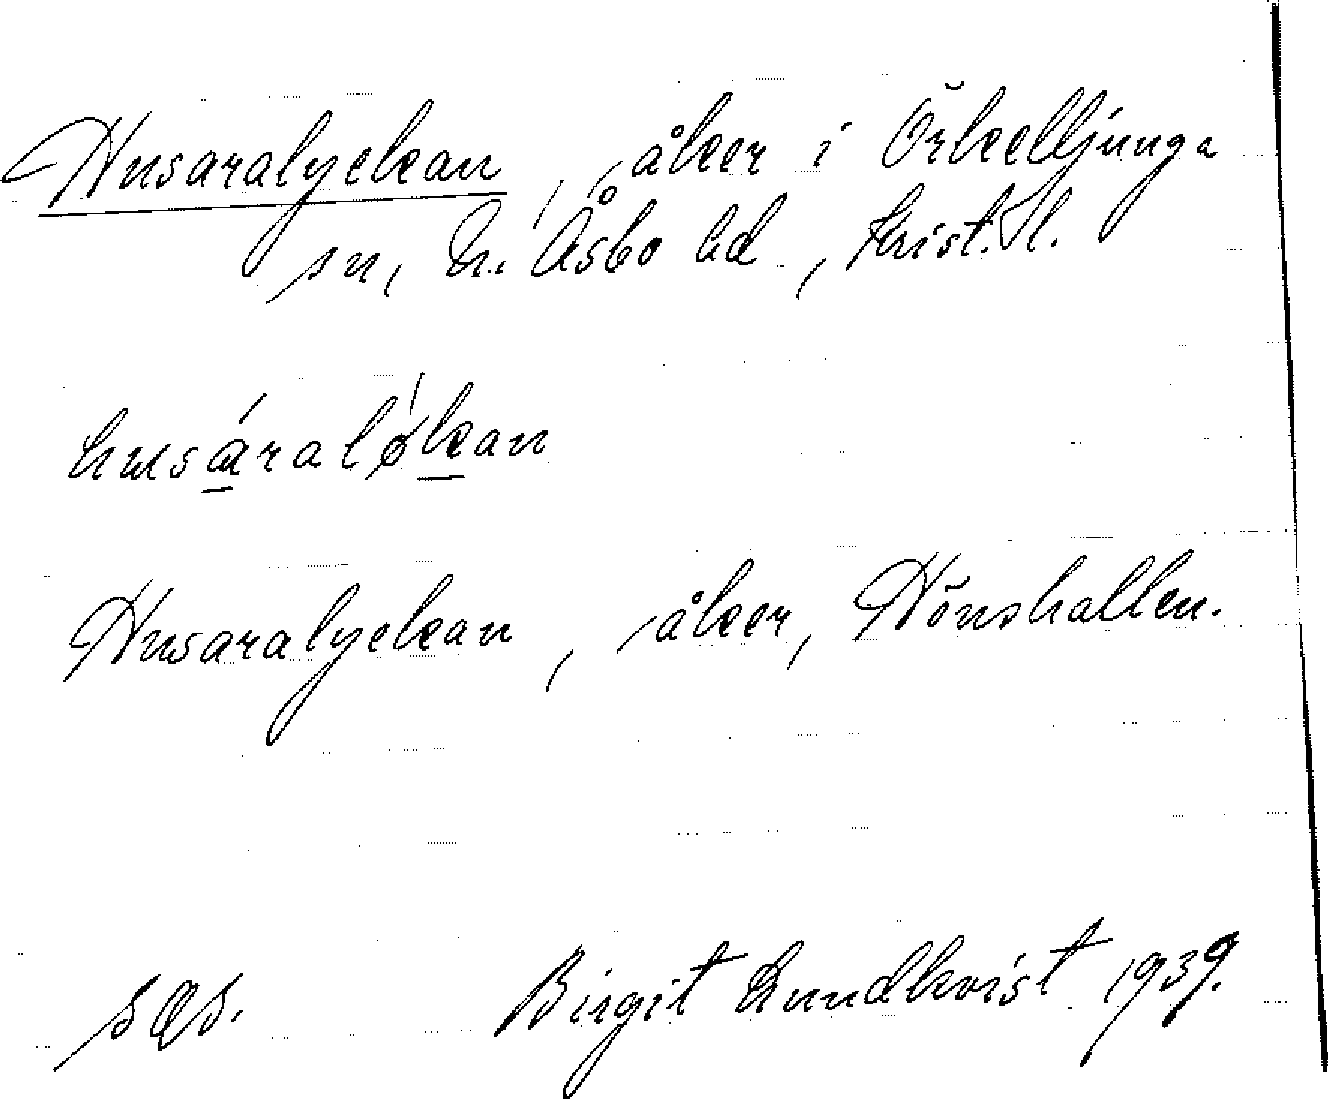 Husaralyckan, åker i Örkelljunga
sn, N. Åsbo hd, Krist. l.
husáraløkan
Husaralyckan, åker, Hönshallen.
Birgit Lundkvist 1939.